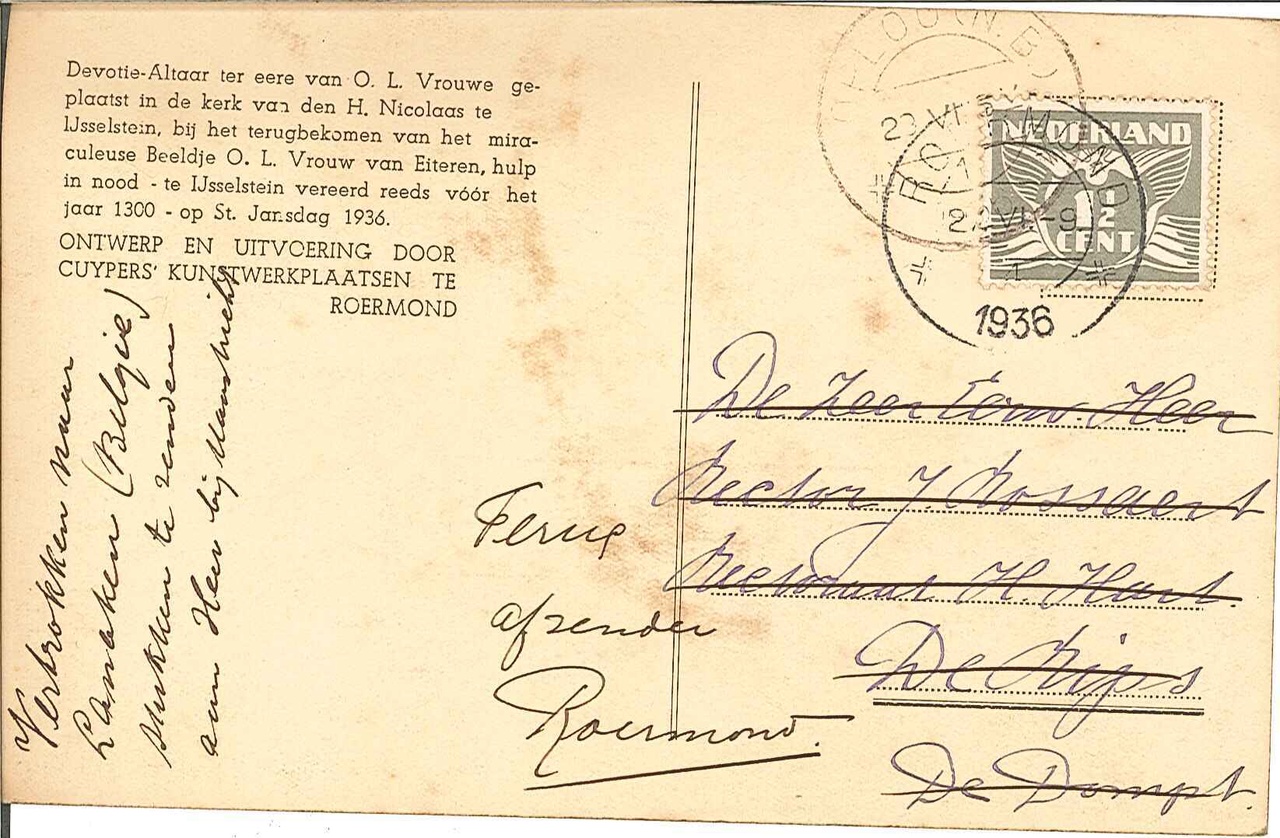 Devotie-Altaar ter eere van O. L. Vrouwe ge-
plaatst in de kerk van den H. Nicolaas te
IJsselstein, bij het terugbekomen van het mira-
culeuse Beeldje O. L. Vrouw van Eiteren, hulp
in nood - te IJsselstein vereerd reeds vóór het
jaar 1300 - op St. Jansdag 1936.
ONTWERP EN UITVOERING DOOR
CUYPERS' KUNSTWERKPLAATSEN TE
ROERMOND
Vertrokken naar
Lanaken (Belgie)
stukken te zenden
aan Heer bij Maastricht
(N.B)
23 VI
NEDERLAND
1½
CENT
ROERMOND
22 VI -9
1
1936
De Zeer Eerw Heer
Rector J. Rossaert
Rectoraat H. Hart.
De Rips
De Dompt.
Terug
afzender
Roermond.